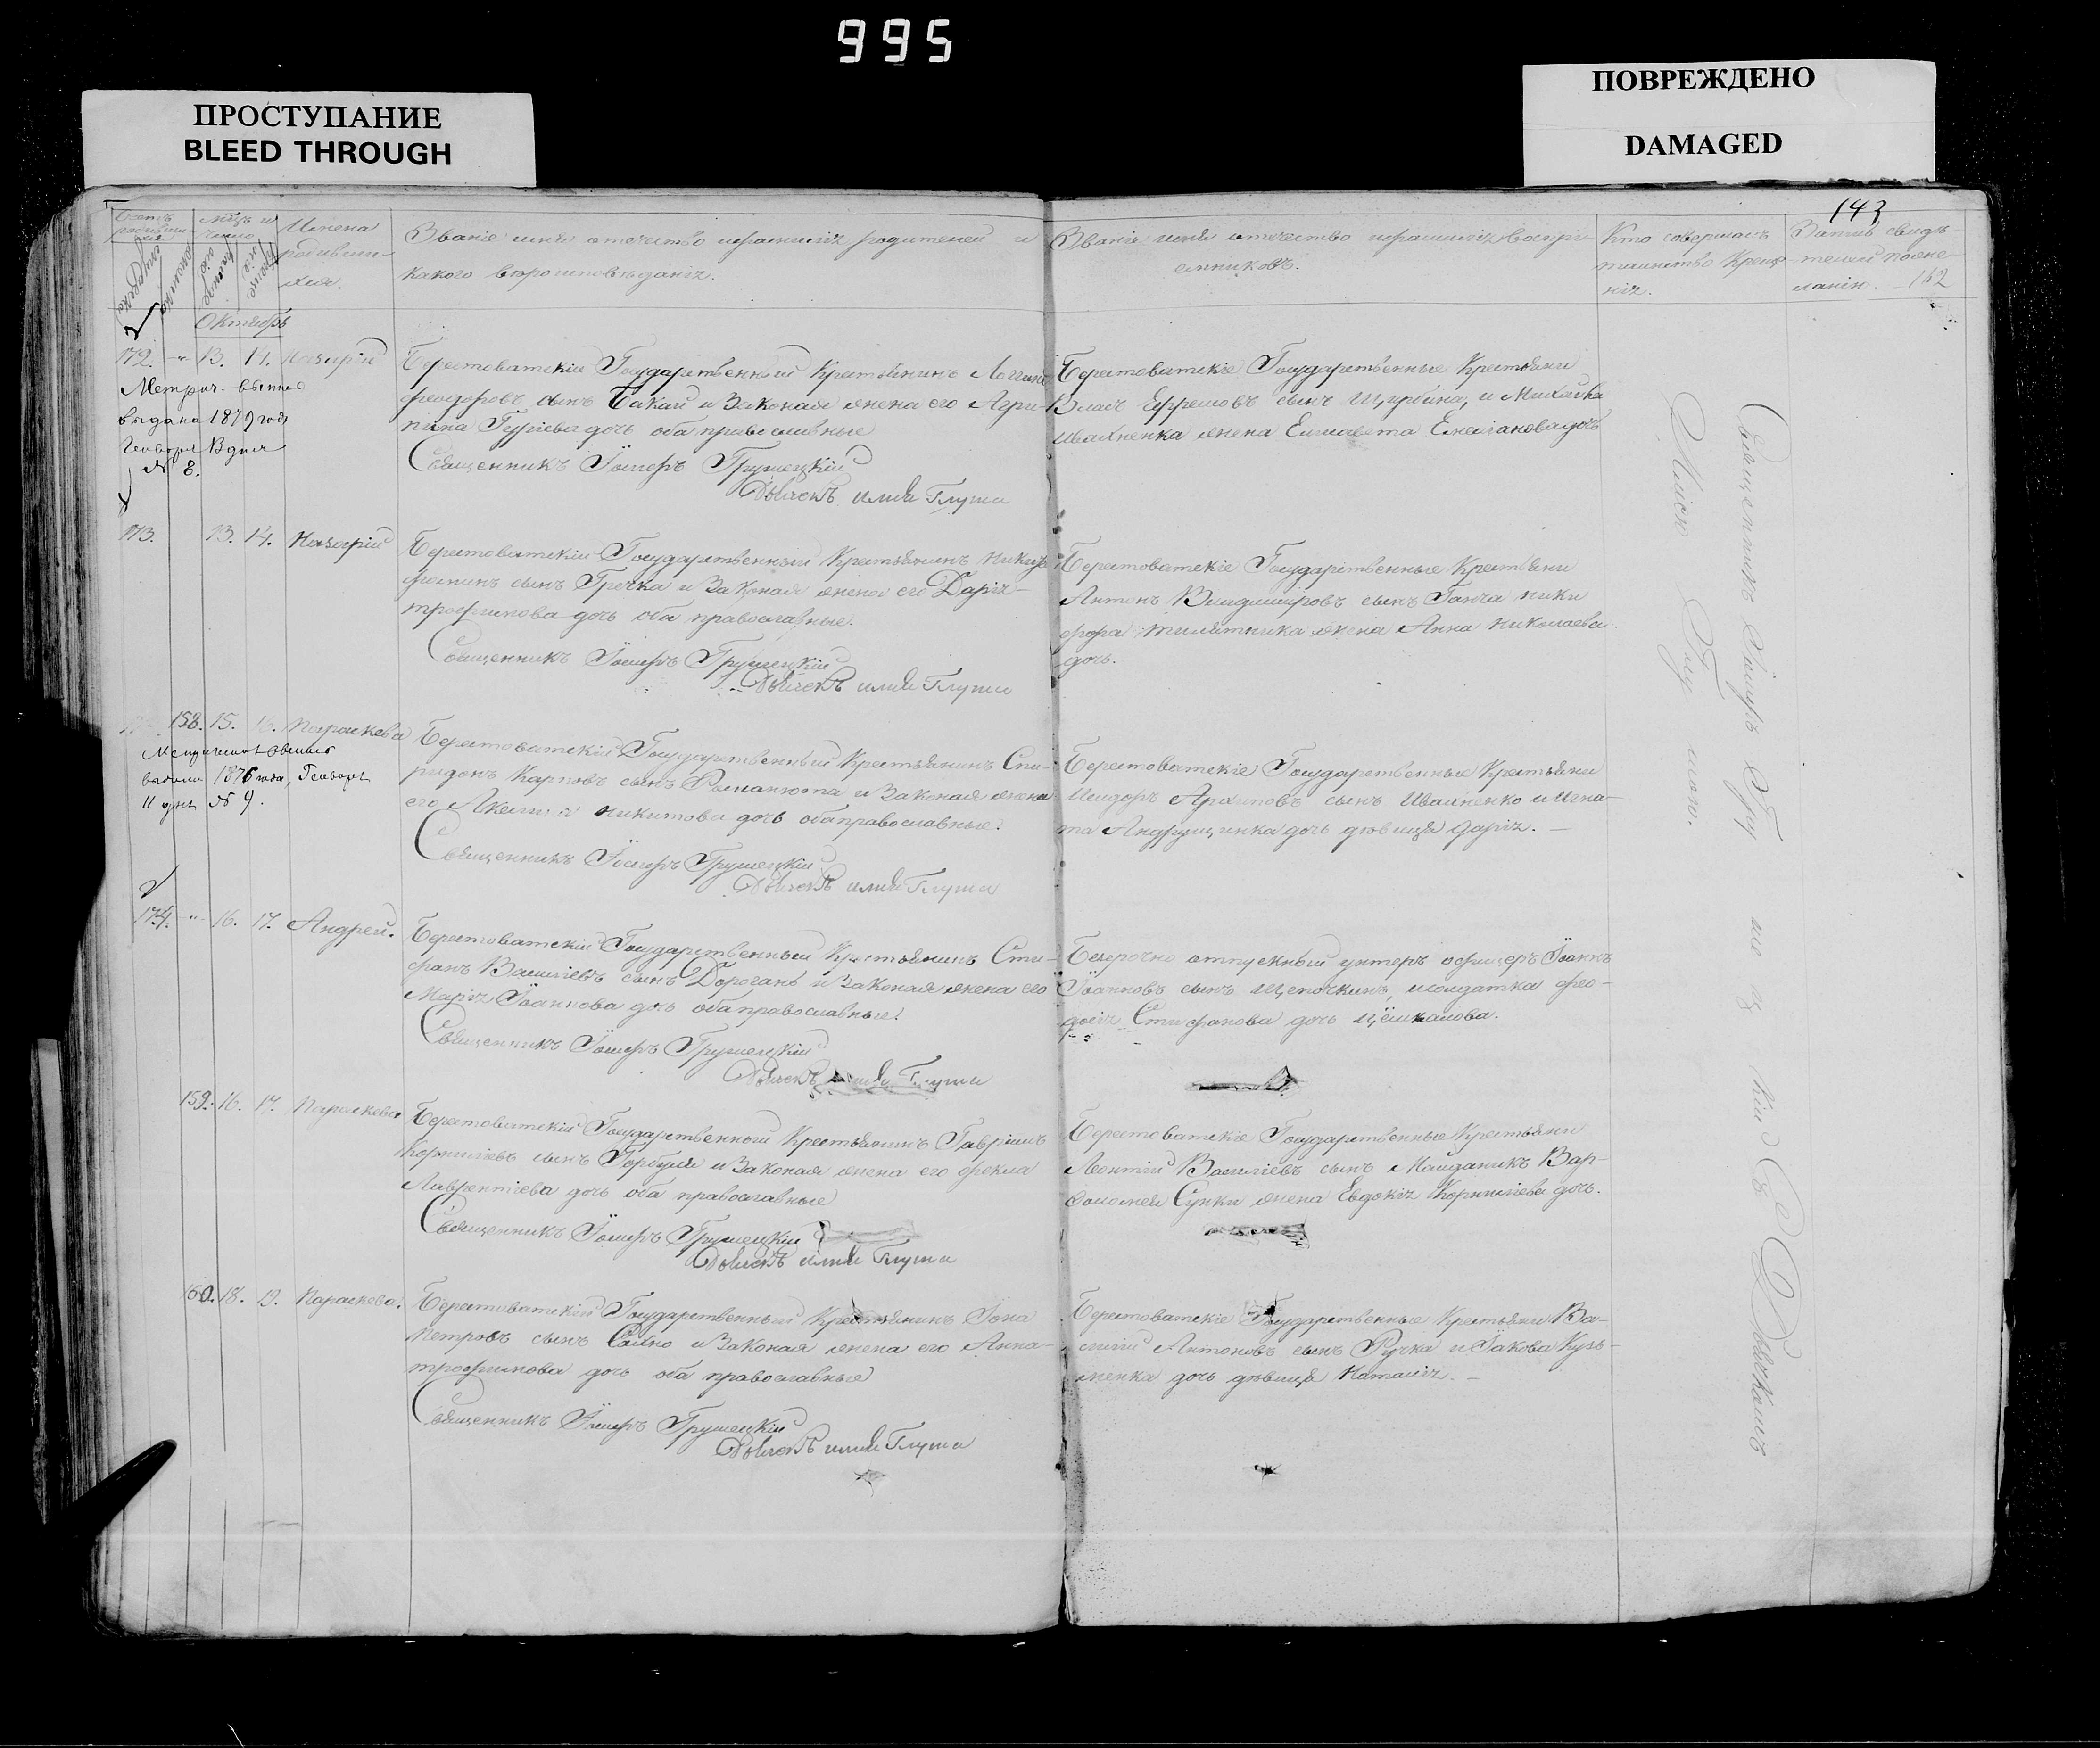 995
ПРОСТУПАНИЕ
BLEED THROUGH
ПОВРЕЖДЕНО
DAMAGED
143
142
Имена
родивши-
хся.
Званіе имя отечество и фамилія родителей и
какого вѣроисповѣданія.
Званіе имя отечество и фамилія воспрі-
емниковъ.
Кто совершалъ
таинство Креще
нія.
Октябрь
172. 13. 14. Назарій
Метрич. выпись
выдана 1879 года
Генваря 13 дня
№ 8.
Берестоватскій Государственный Крестьянинъ Логгинъ
Феодоровъ сынъ Бакай и Законая жена его Агри-
пина Гуріева дочь оба православные
Священникъ Іосифъ Грушецкій
Дьячекъ Илія Глуша
Берестоватскіе Государственные Крестьяни
Власъ Ефремовъ сынъ Щербина, и Михайла
Ивахненка жена Елисавета дочь
173. 13. 14. Назарій
Берестоватскій Государственный Крестьянинъ Никифоръ
сынъ Гречка и Законая жена его Дарія
трофимова дочь оба православные.
Священникъ Іосифъ Грушецкій
Дьячекъ Илія Глуша
Берестоватскіе Государственные Крестьяни
Антонъ Владиміровъ сынъ Ганча ники
фора жена Анна Николаева
дочь.
158. 15. 16. Параскева
1876 года, Генваря
11 дня № 9.
Берестоватскій Государственный Крестьянинъ Спи-
ридонъ Карповъ сынъ Романюта и Законая жена
его Акелина Никитова дочь оба православные.
Священникъ Іосифъ Грушецкій
Дьячекъ Илія Глуша
Берестоватскіе Государственные Крестьяни
Исидоръ Архиповъ сынъ Ивахненко и Игна-
та Андрущинка дочь дѣвица Дарія. —
174. -"- 16. 17. Андрей.
Берестоватскій Государственный Крестьянинъ Сте-
фанъ Василіевъ сынъ Дорогань и Законая жена его
Марія Іоаннова дочь оба православные.
Священникъ Іосифъ Грушецкій
Дьячекъ Илія Глуша
Безсрочно отпускный унтеръ офицеръ Іоаннъ
Іоанновъ сынъ Щепочкинъ, и солдатка Фео-
досія Стефанова дочь
159. 16. 17. Параскева
Берестоватскій Государственный Крестьянинъ Гавріилъ
Корниліевъ сынъ Горбуля и Законая жена его Фекла
Лаврентіева дочь оба православные
Священникъ Іосифъ Грушецкій
Дьячекъ Илія Глуша
Берестоватскіе Государственные Крестьяни
Леонтій Василіевъ сынъ Майданикъ Вар-
ѳоломея Супки жена Евдокія Корниліева дочь.
160. 18. 19. Параскева.
Берестоватскій Государственный Крестьянинъ Іона
Петровъ сынъ Сайко и Законая жена его Анна
трофимова дочь оба православные
Священникъ Іосифъ Грушецкій
Дьячекъ Илія Глуша
Берестоватскіе Государственные Крестьяни Ва-
силій Антоновъ сынъ Ручка и Іакова Кузь-
менка дочь дѣвица Наталія. —